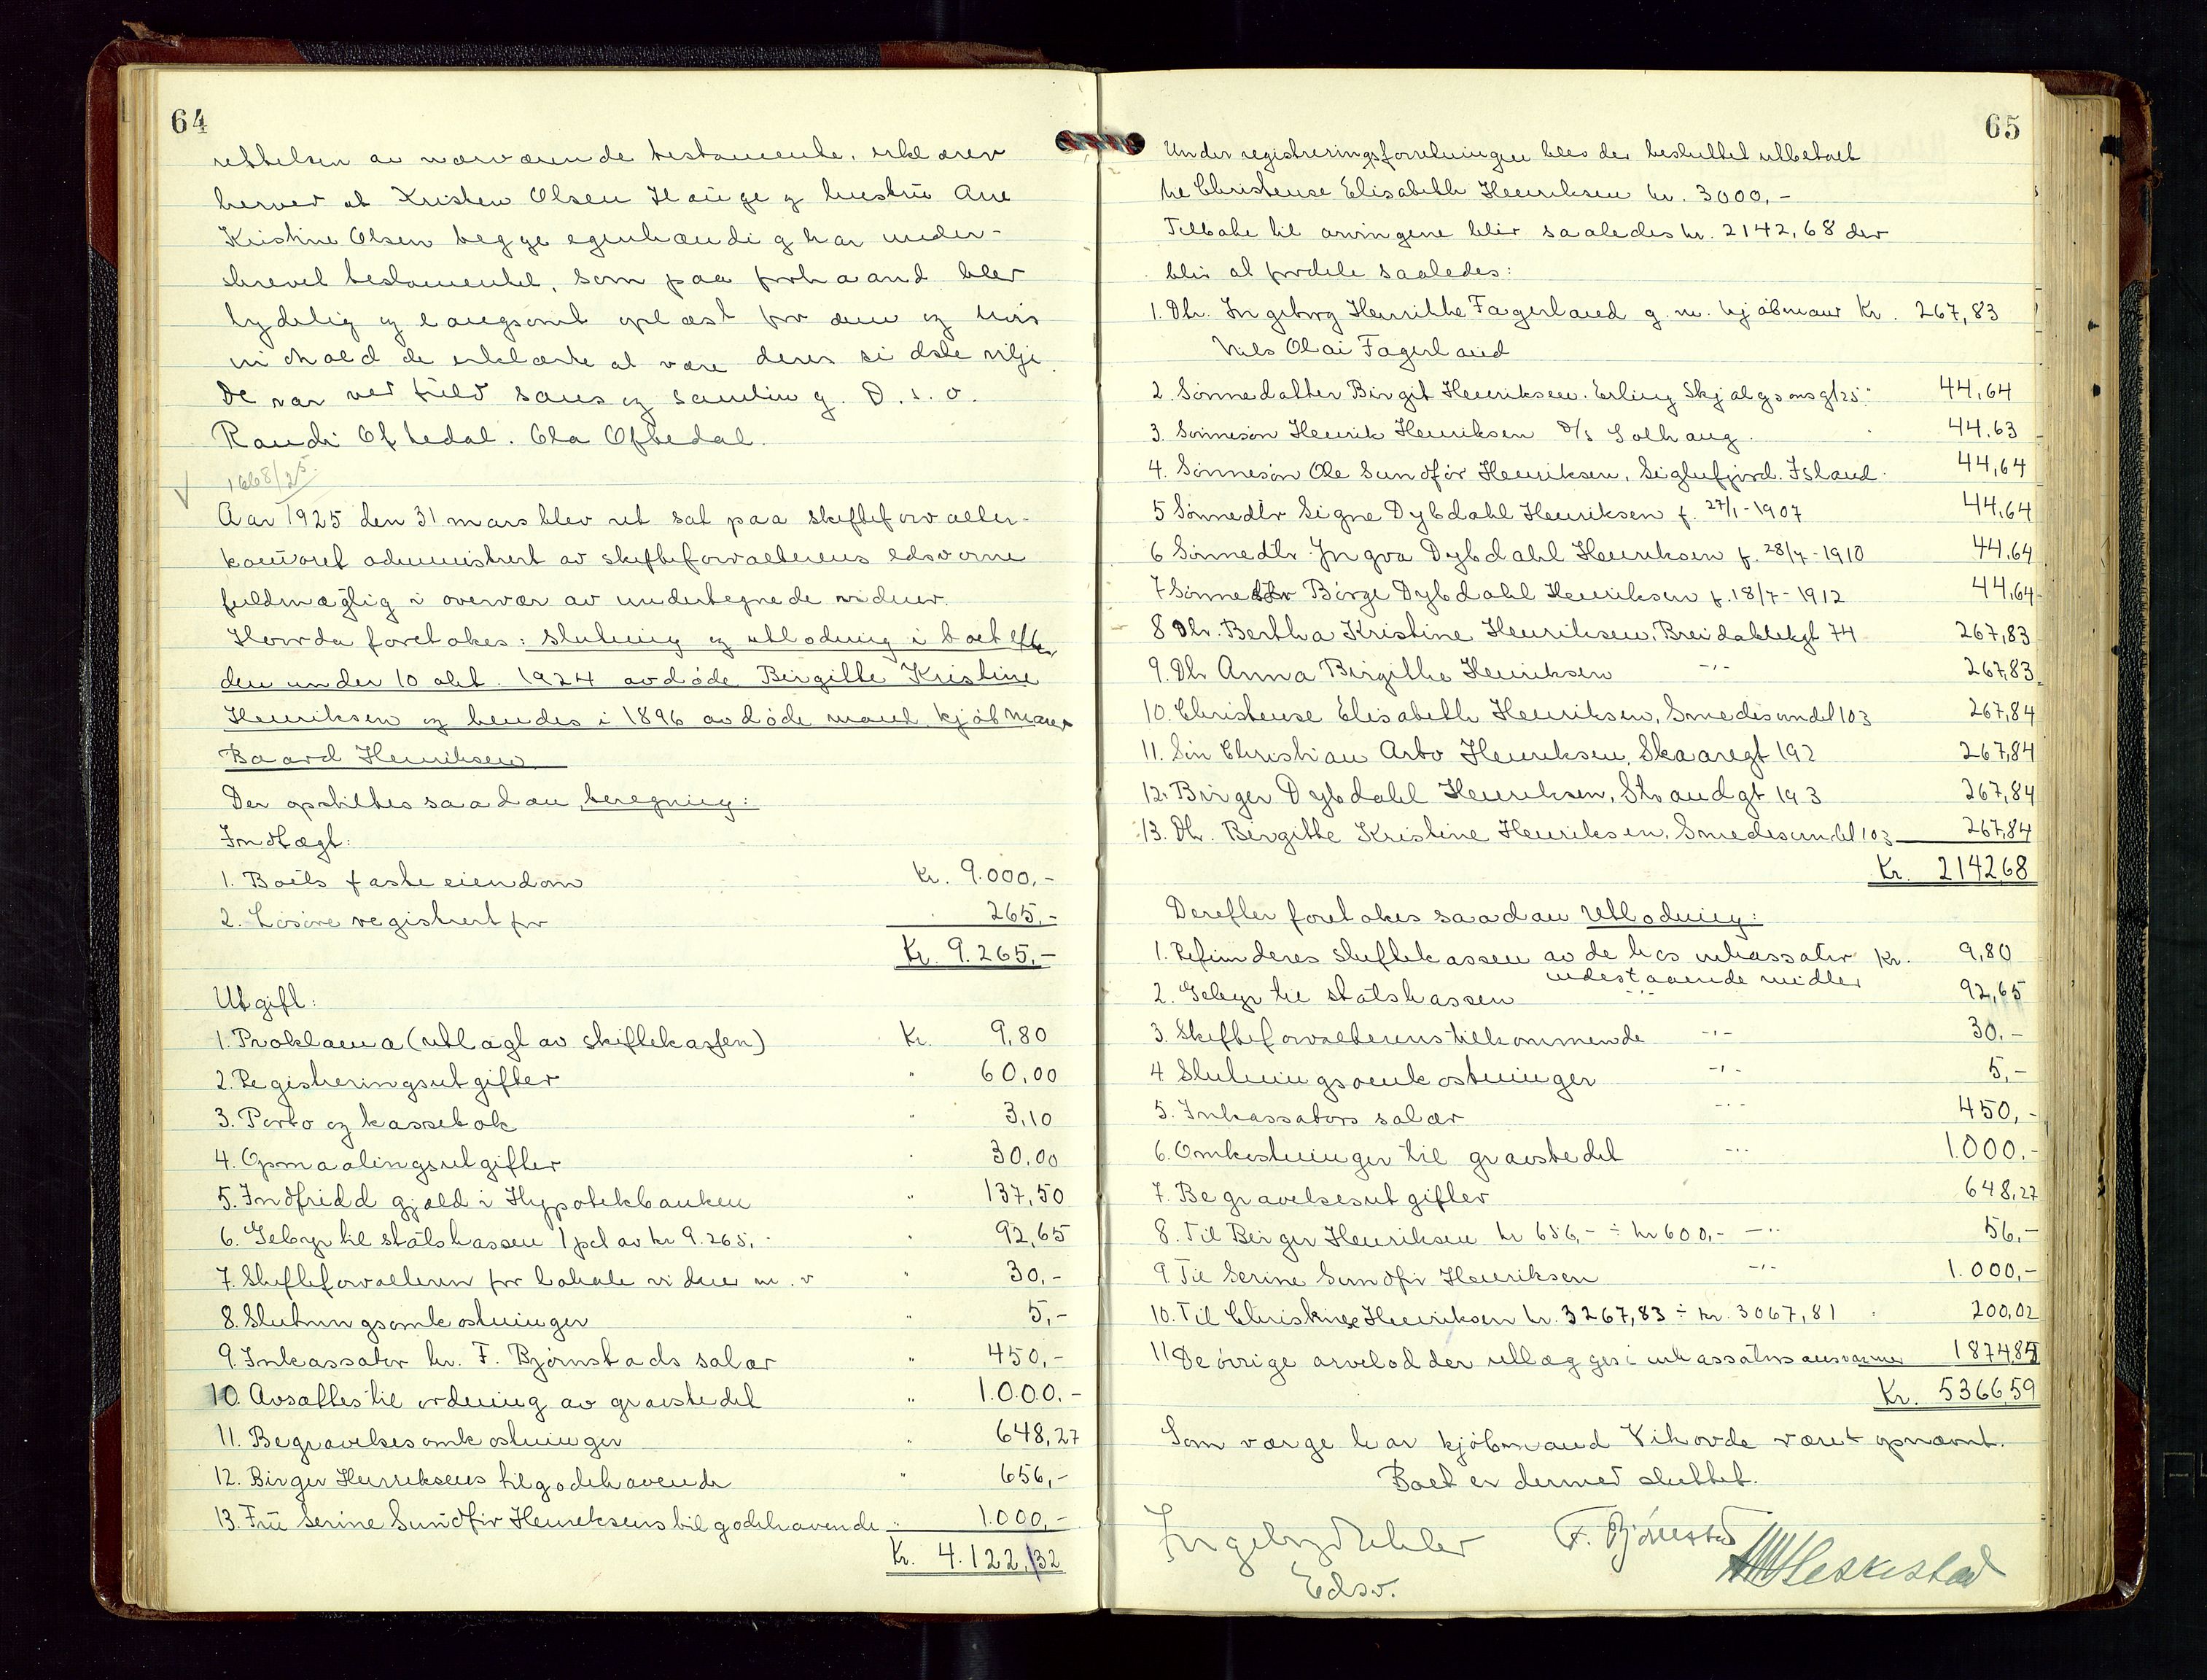 64
rettelsen av nærværende testamente, erklærer
herved at Kristen Olsen Hauge og hustru Ane
Kristine Olsen begge egenhændig har under-
skrevet testamentet, som paa forhaand blev
tydelig og langsomt oplæst for dem og hvis
indhold de erklærte at være deres sidste vilje.
De var ved fuld sans og samling. D. s. o.
Randi Oftedal. Ola Oftedal.
1668/25.
Aar 1925 den 31 mars blev ret sat paa skifteforvalter-
kontoret administrert av skifteforvalterens edsvorne
fuldmægtig i overvær av undertegnede vidner.
Hvorda foretokes: slutning og utlodning i boet efter
den under 10 okt. 1924 avdöde Birgitte Kristine
Henriksen og hendes i 1896 avdöde mand kjöbmand
Baard Henriksen
Der opstilltes saadan beregning:
Indtægt:
1. Boets faste eiendom Kr. 9.000,-
2. Lösöre registrert for 265,-
Kr. 9.265,-
Utgift:
1. Proklama (utlagt av skiftekassen) Kr. 9,80
2. Registreringsutgifter " 60,00
3. Porto og kassebok " 3,10
4. Opmaalingsutgifter " 30,00
5. Indfridd gjæld i Hypotekbanken " 137,50
6. Gebyr til statskassen 1 pct av kr 9.265,- " 92,65
7. Skifteforvalteren for lokale vidner m. v " 30,-
8. Slutningsomkostninger " 5,-
9. Inkassator hr. F. Björnstads salær " 450,-
10. Avsættes til ordning av gravstedet " 1.000,-
11. Begravelsesomkostninger " 648,27
12. Birger Henriksens tilgodehavende " 656,-
13. Fru Serine Sundför Henriksens tilgodehavende " 1.000,-
Kr. 4.122,32
65
Under registreringsforretningen blev der besluttet utbetalt
til Christense Elisabeth Henriksen kr. 3000,-
Tilbake til arvingene blir saaledes kr. 2142,68 der
blir at fordele saaledes:
1. Dtr. Ingeborg Henrikke Fagerland g. m. kjöbmand Kr. 267,83
Nils Olai Fagerland
2. Sönnedatter Birgit Henriksen. Erling Skjalgsonsgt 25 " 44,64
3. Sönnesön Henrik Henriksen D/s Solhaug 44,63
4. Sönnesön Ole Sundför Henriksen, Siglufjord. Island 44,64
5 Sönnedtr Signe Dybdahl Henriksen f. 27/1-1907 44,64
6 Sönnedtr. Yngva Dybdahl Henriksen f. 28/7-1910 44,64
7 Sönnedtr Börge Dybdahl Henriksen f. 18/7-1912 44,64
8 Dtr. Bertha Kristine Henriksen, Breidablikgt 74 267,83
9. Dtr Anna Birgithe Henriksen -"- 267,83
10. Christense Elisabeth Henriksen, Smedesundet 103 267,84
11. Sön Christian Arbo Henriksen, Skaaregt 192 267,84
12. Birger Dybdahl Henriksen, Strandgt 193 267,84
13. Dtr. Birgitte Kristine Henriksen, Smedesundet 103 267,84
Kr. 2142,68
Derefter foretokes saadan Utlodning:
1. Refunderes skiftekassen av de hos inkassator Kr. 9,80
indestaaende midler
2. Gebyr til statskassen -"- 92,65
3. Skifteforvalterens tilkommende -"- 30,-
4 Slutningsomkostninger -"- 5,-
5. Inkassators salær -"- 450,-
6. Omkostninger til gravstedet -"- 1.000,-
7. Begravelsesutgifter 648,27
8. Til Birger Henriksen kr 656,- ÷ kr 600,- -"- 56,-
9. Til Serine Sundför Henriksen -"- 1.000,-
10. Til Christense Henriksen kr. 3267,83 ÷ kr. 3067,81 " 200,02
11 De övrige arvelodder utlægges i inkassators ansvarssum 1874,85
Kr. 5366,59
Som værge har kjöbmand Vihovde været opnævnt.
Boet er dermed sluttet.
F. Björnstad
Edsv.